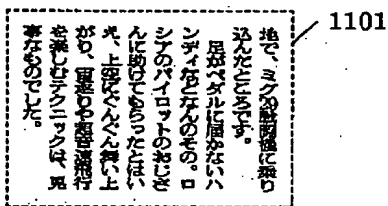 地で、ミグ29戦闘機に乗り
込んだところです。
足がペダルに届かないハ
ンディなどなんのその。ロ
シアのパイロットのおじさ
んに助けてもらったとはい
え、上空にぐんぐん舞い上
がり、宙返りや超音速飛行
を楽しむテクニックは、見
事なものでした。
1101